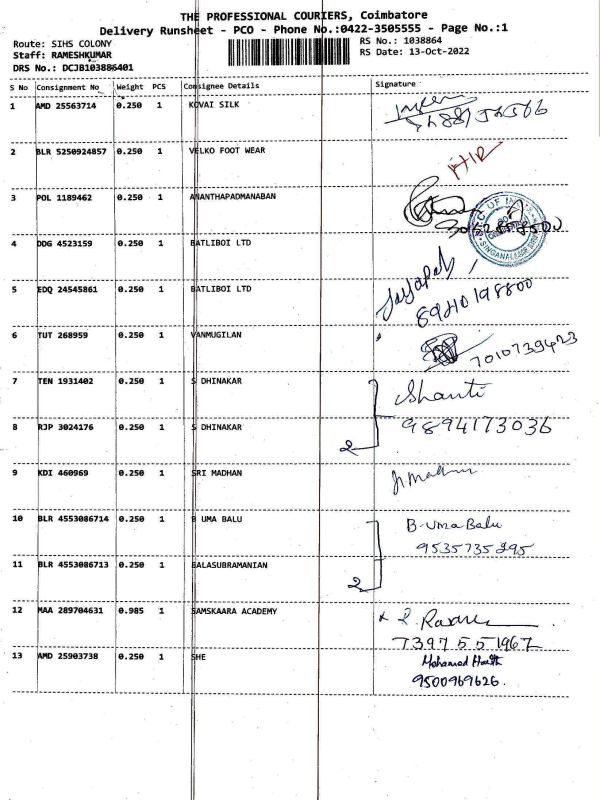 THE PROFESSIONAL COURIERS, Coimbatore
Delivery Runsheet - PCO - Phone No.:0422-3505555 - Page No.:1
Route: SIHS COLONY
RS No.: 1038864
Staff: RAMESHKUMAR
RS Date: 13-Oct-2022
DRS No.: DCJB103886401
S No Consignment No Weight PCS Consignee Details Signature
1 AMD 25563714 0.250 1 KOVAI SILK
2 BLR 5250924857 0.250 1 VELKO FOOT WEAR
3 POL 1189462 0.250 1 ANANTHAPADMANABAN
4 DDG 4523159 0.250 1 BATLIBOI LTD
5 EDQ 24545861 0.250 1 BATLIBOI LTD
8940198800
6 TUT 268959 0.250 1 VANMUGILAN
7010739423
7 TEN 1931402 0.250 1 S DHINAKAR Shanti
8 RJP 3024176 0.250 1 S DHINAKAR 9894173036
2
9 KDI 460969 0.250 1 SRI MADHAN
10 BLR 4553086714 0.250 1 B UMA BALU B-Uma Balu
9535735295
11 BLR 4553086713 0.250 1 BALASUBRAMANIAN
2
12 MAA 289704631 0.985 1 SAMSKAARA ACADEMY
7397551967
13 AMD 25903738 0.250 1 SHE Mohamed
9500969626.